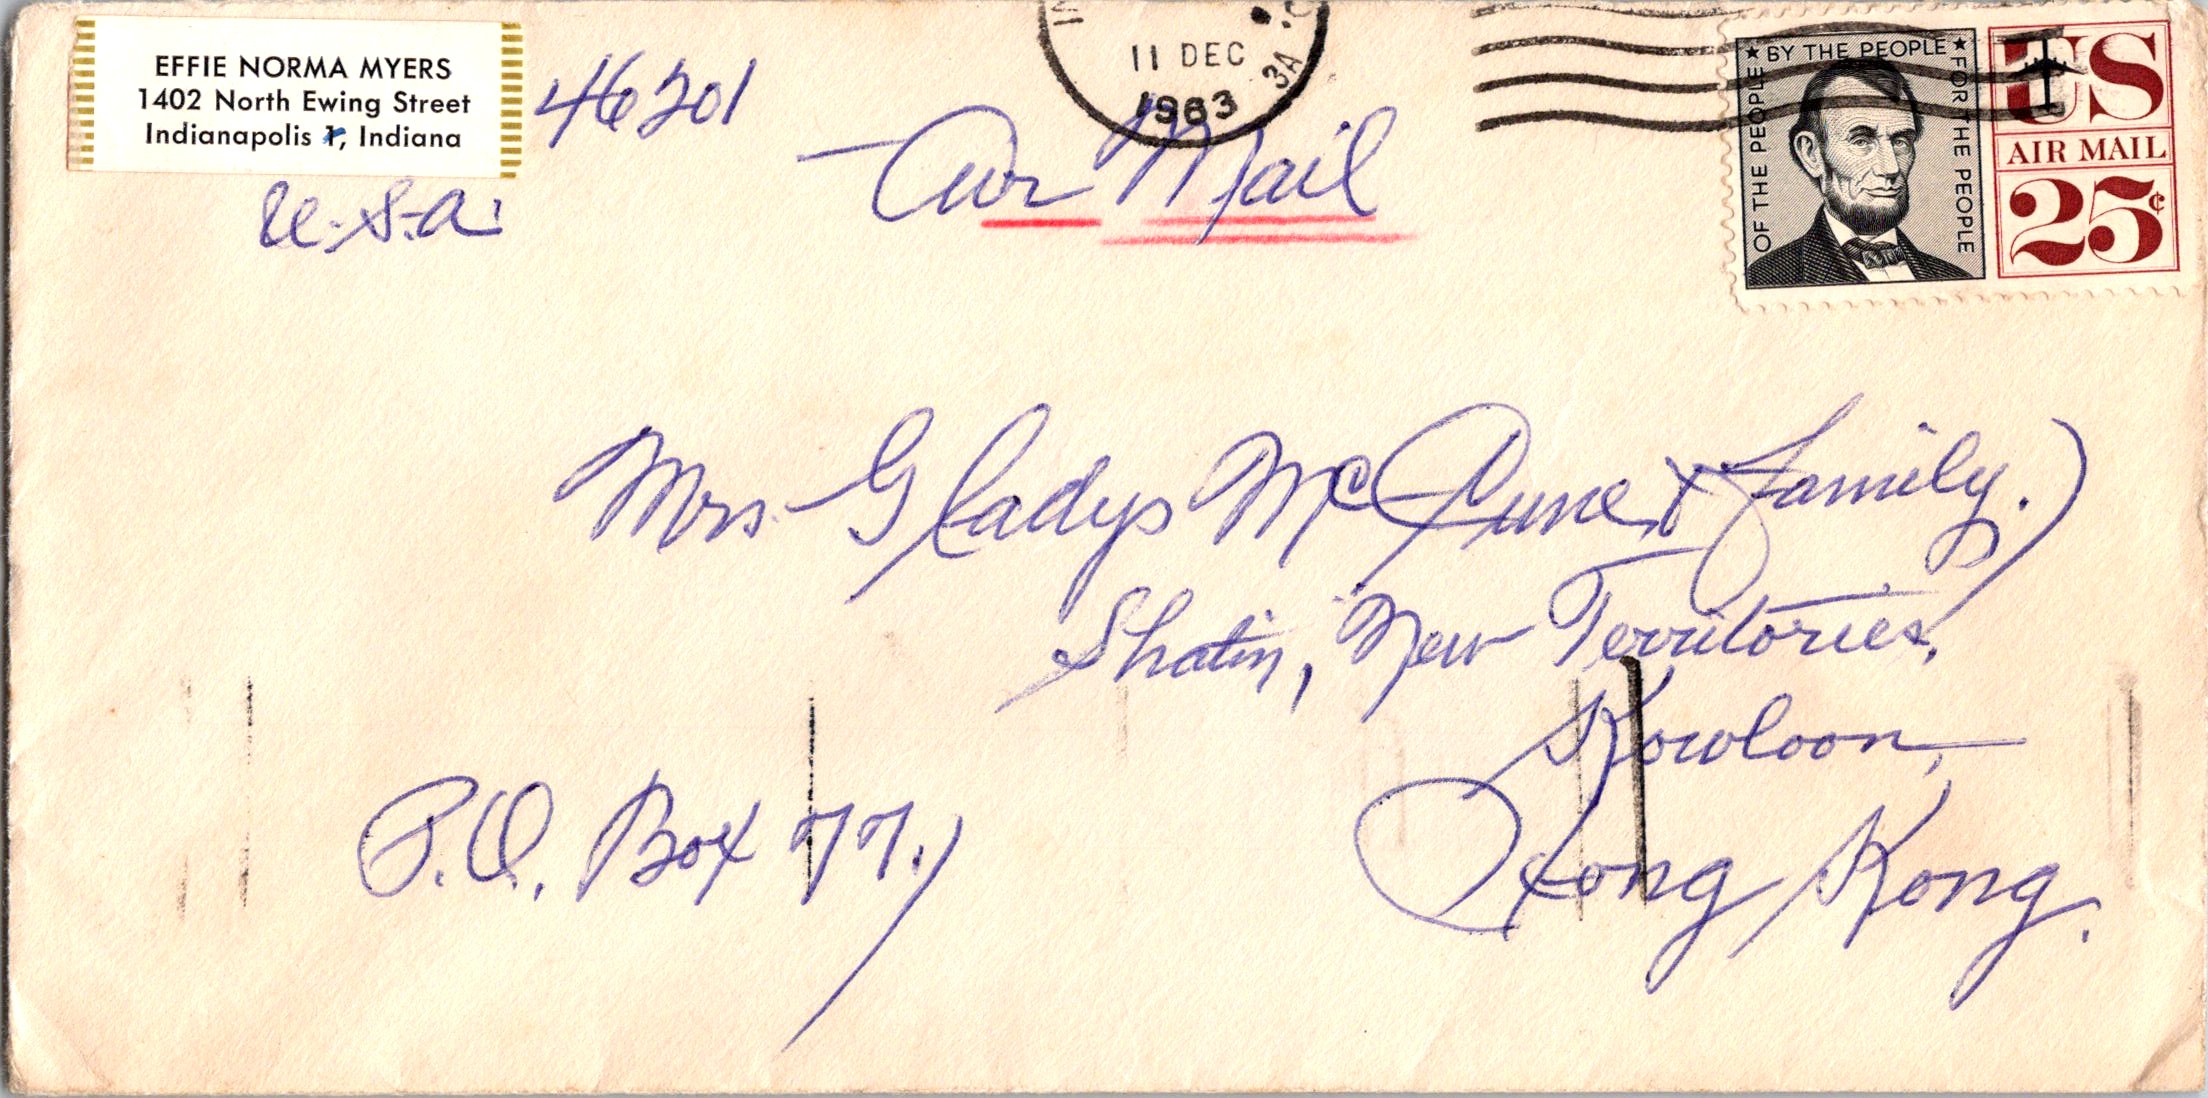 EFFIE NORMA MYERS
1402 North Ewing Street
Indianapolis 1, Indiana
46201
U.S.A.
Air Mail
11 DEC
3A
1963
OF THE PEOPLE ★ BY THE PEOPLE ★ FOR THE PEOPLE
US
AIR MAIL
25¢
Mrs. Gladys McCune & family.)
Shatin, New Territories,
Kowloon,
P.O. Box 77.)
Hong Kong.